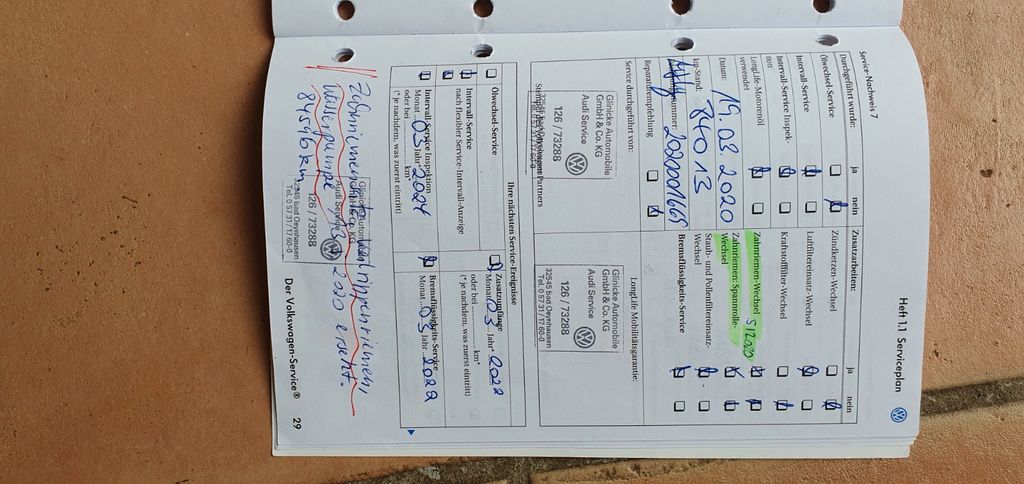 Heft 1.1 Serviceplan
Service-Nachweis 7
Durchgeführt wurde: ja nein
Ölwechsel-Service
Intervall-Service
Intervall-Service Inspek-
tion
LongLife-Motorenöl
verwendet
Datum: 19.03.2020
km-Stand: 84013
Reparaturempfehlung
Service durchgeführt von:
Glinicke Automobile
GmbH & Co. KG
Audi Service
126 / 73288
32545 bad Oeynhausen
Tel. 0 57 31/ 17 60-0
Zusatzarbeiten: ja nein
Zündkerzen-Wechsel
Luftfiltereinsatz-Wechsel
Kraftstofffilter-Wechsel
Zahnriemen-Wechsel 5/2020
Zahnriemen: Spannrolle-
Wechsel
Staub- und Pollenfiltereinsatz-
Wechsel
Bremsflüssigkeits-Service
LongLife Mobilitätsgarantie:
Glinicke Automobile
GmbH & Co. KG
Audi Service
126 / 73288
32545 bad Oeynhausen
Tel. 0 57 31/ 17 60-0
Ihre nächsten Service-Ereignisse
Ölwechsel-Service
Intervall-Service
nach flexibler Service-Intervall-Anzeige
Intervall-Service Inspektion
Monat 03 Jahr 2024
oder bei km*
(* je nachdem, was zuerst eintritt)
Zusatzumfänge
Monat 03 Jahr* 2022
oder bei km*
(* je nachdem, was zuerst eintritt)
Bremsflüssigkeits-Service
Monat 03 Jahr 2022
Wasserpumpe 2020 ersetzt.
84546 km
126 / 73288
32545 bad Oeynhausen
Tel. 0 57 31/ 17 60-0
Der Volkswagen-Service® 29